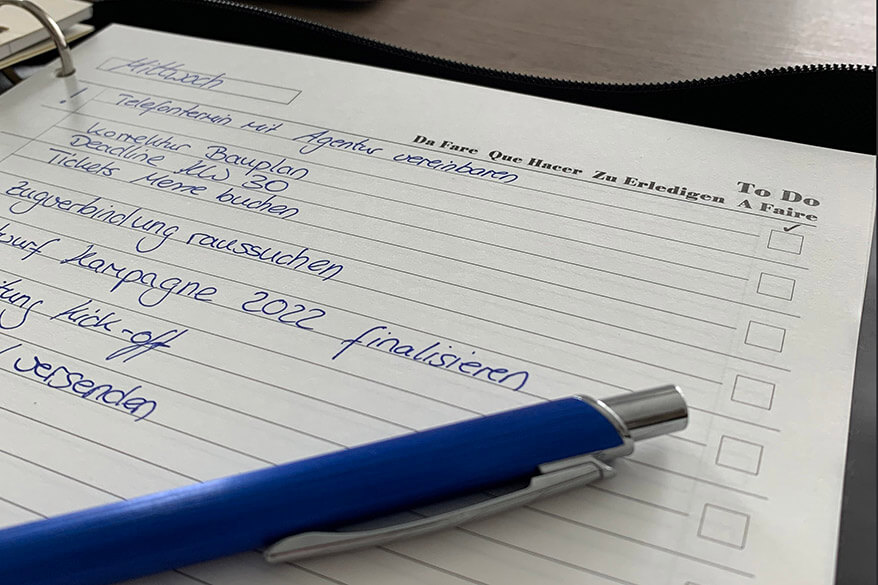 Mittwoch
! Telefontermin mit Agentur vereinbaren
Korrektur Bauplan
Deadline KW 30
Tickets Messe buchen
Zugverbindung raussuchen
Kampagne 2022 finalisieren
Kick-off
versenden
Da Fare Que Hacer Zu Erledigen To Do
A Faire
✓